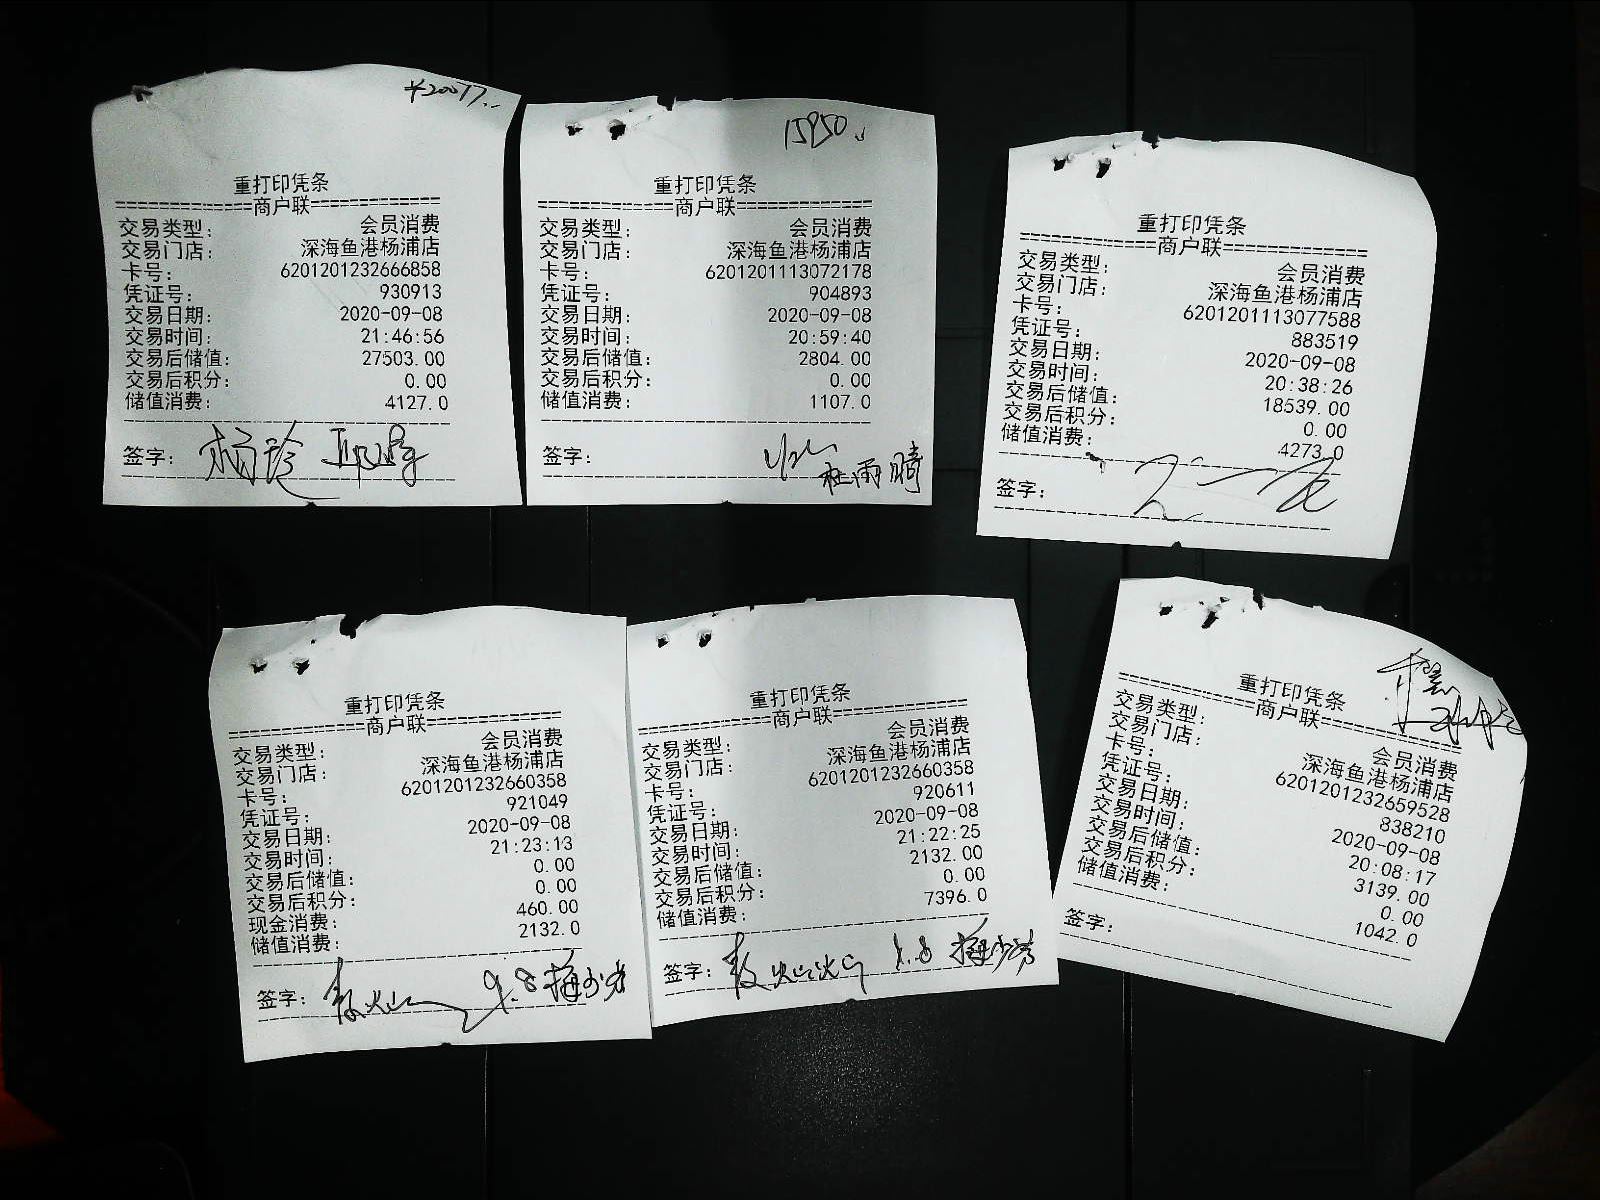 ¥20077..
重打印凭条
=============商户联=============
交易类型: 会员消费
交易门店: 深海鱼港杨浦店
卡号: 6201201232666858
凭证号: 930913
交易日期: 2020-09-08
交易时间: 21:46:56
交易后储值: 27503.00
交易后积分: 0.00
储值消费: 4127.0
签字:
重打印凭条
=============商户联=============
交易类型: 会员消费
交易门店: 深海鱼港杨浦店
卡号: 6201201113072178
凭证号: 904893
交易日期: 2020-09-08
交易时间: 20:59:40
交易后储值: 2804.00
交易后积分: 0.00
储值消费: 1107.0
签字: 杜雨晴
重打印凭条
=============商户联=============
交易类型: 会员消费
交易门店: 深海鱼港杨浦店
卡号: 6201201113077588
凭证号: 883519
交易日期: 2020-09-08
交易时间: 20:38:26
交易后储值: 18539.00
交易后积分: 0.00
储值消费: 4273.0
签字:
重打印凭条
=============商户联=============
交易类型: 会员消费
交易门店: 深海鱼港杨浦店
卡号: 6201201232660358
凭证号: 921049
交易日期: 2020-09-08
交易时间: 21:23:13
交易后储值: 0.00
交易后积分: 0.00
现金消费: 460.00
储值消费: 2132.0
签字: 9.8
重打印凭条
=============商户联=============
交易类型: 会员消费
交易门店: 深海鱼港杨浦店
卡号: 6201201232660358
凭证号: 920611
交易日期: 2020-09-08
交易时间: 21:22:25
交易后储值: 2132.00
交易后积分: 0.00
储值消费: 7396.0
签字: 9.8
重打印凭条
=============商户联=============
交易类型: 会员消费
交易门店: 深海鱼港杨浦店
卡号: 6201201232659528
凭证号: 838210
交易日期: 2020-09-08
交易时间: 20:08:17
交易后储值: 3139.00
交易后积分: 0.00
储值消费: 1042.0
签字: